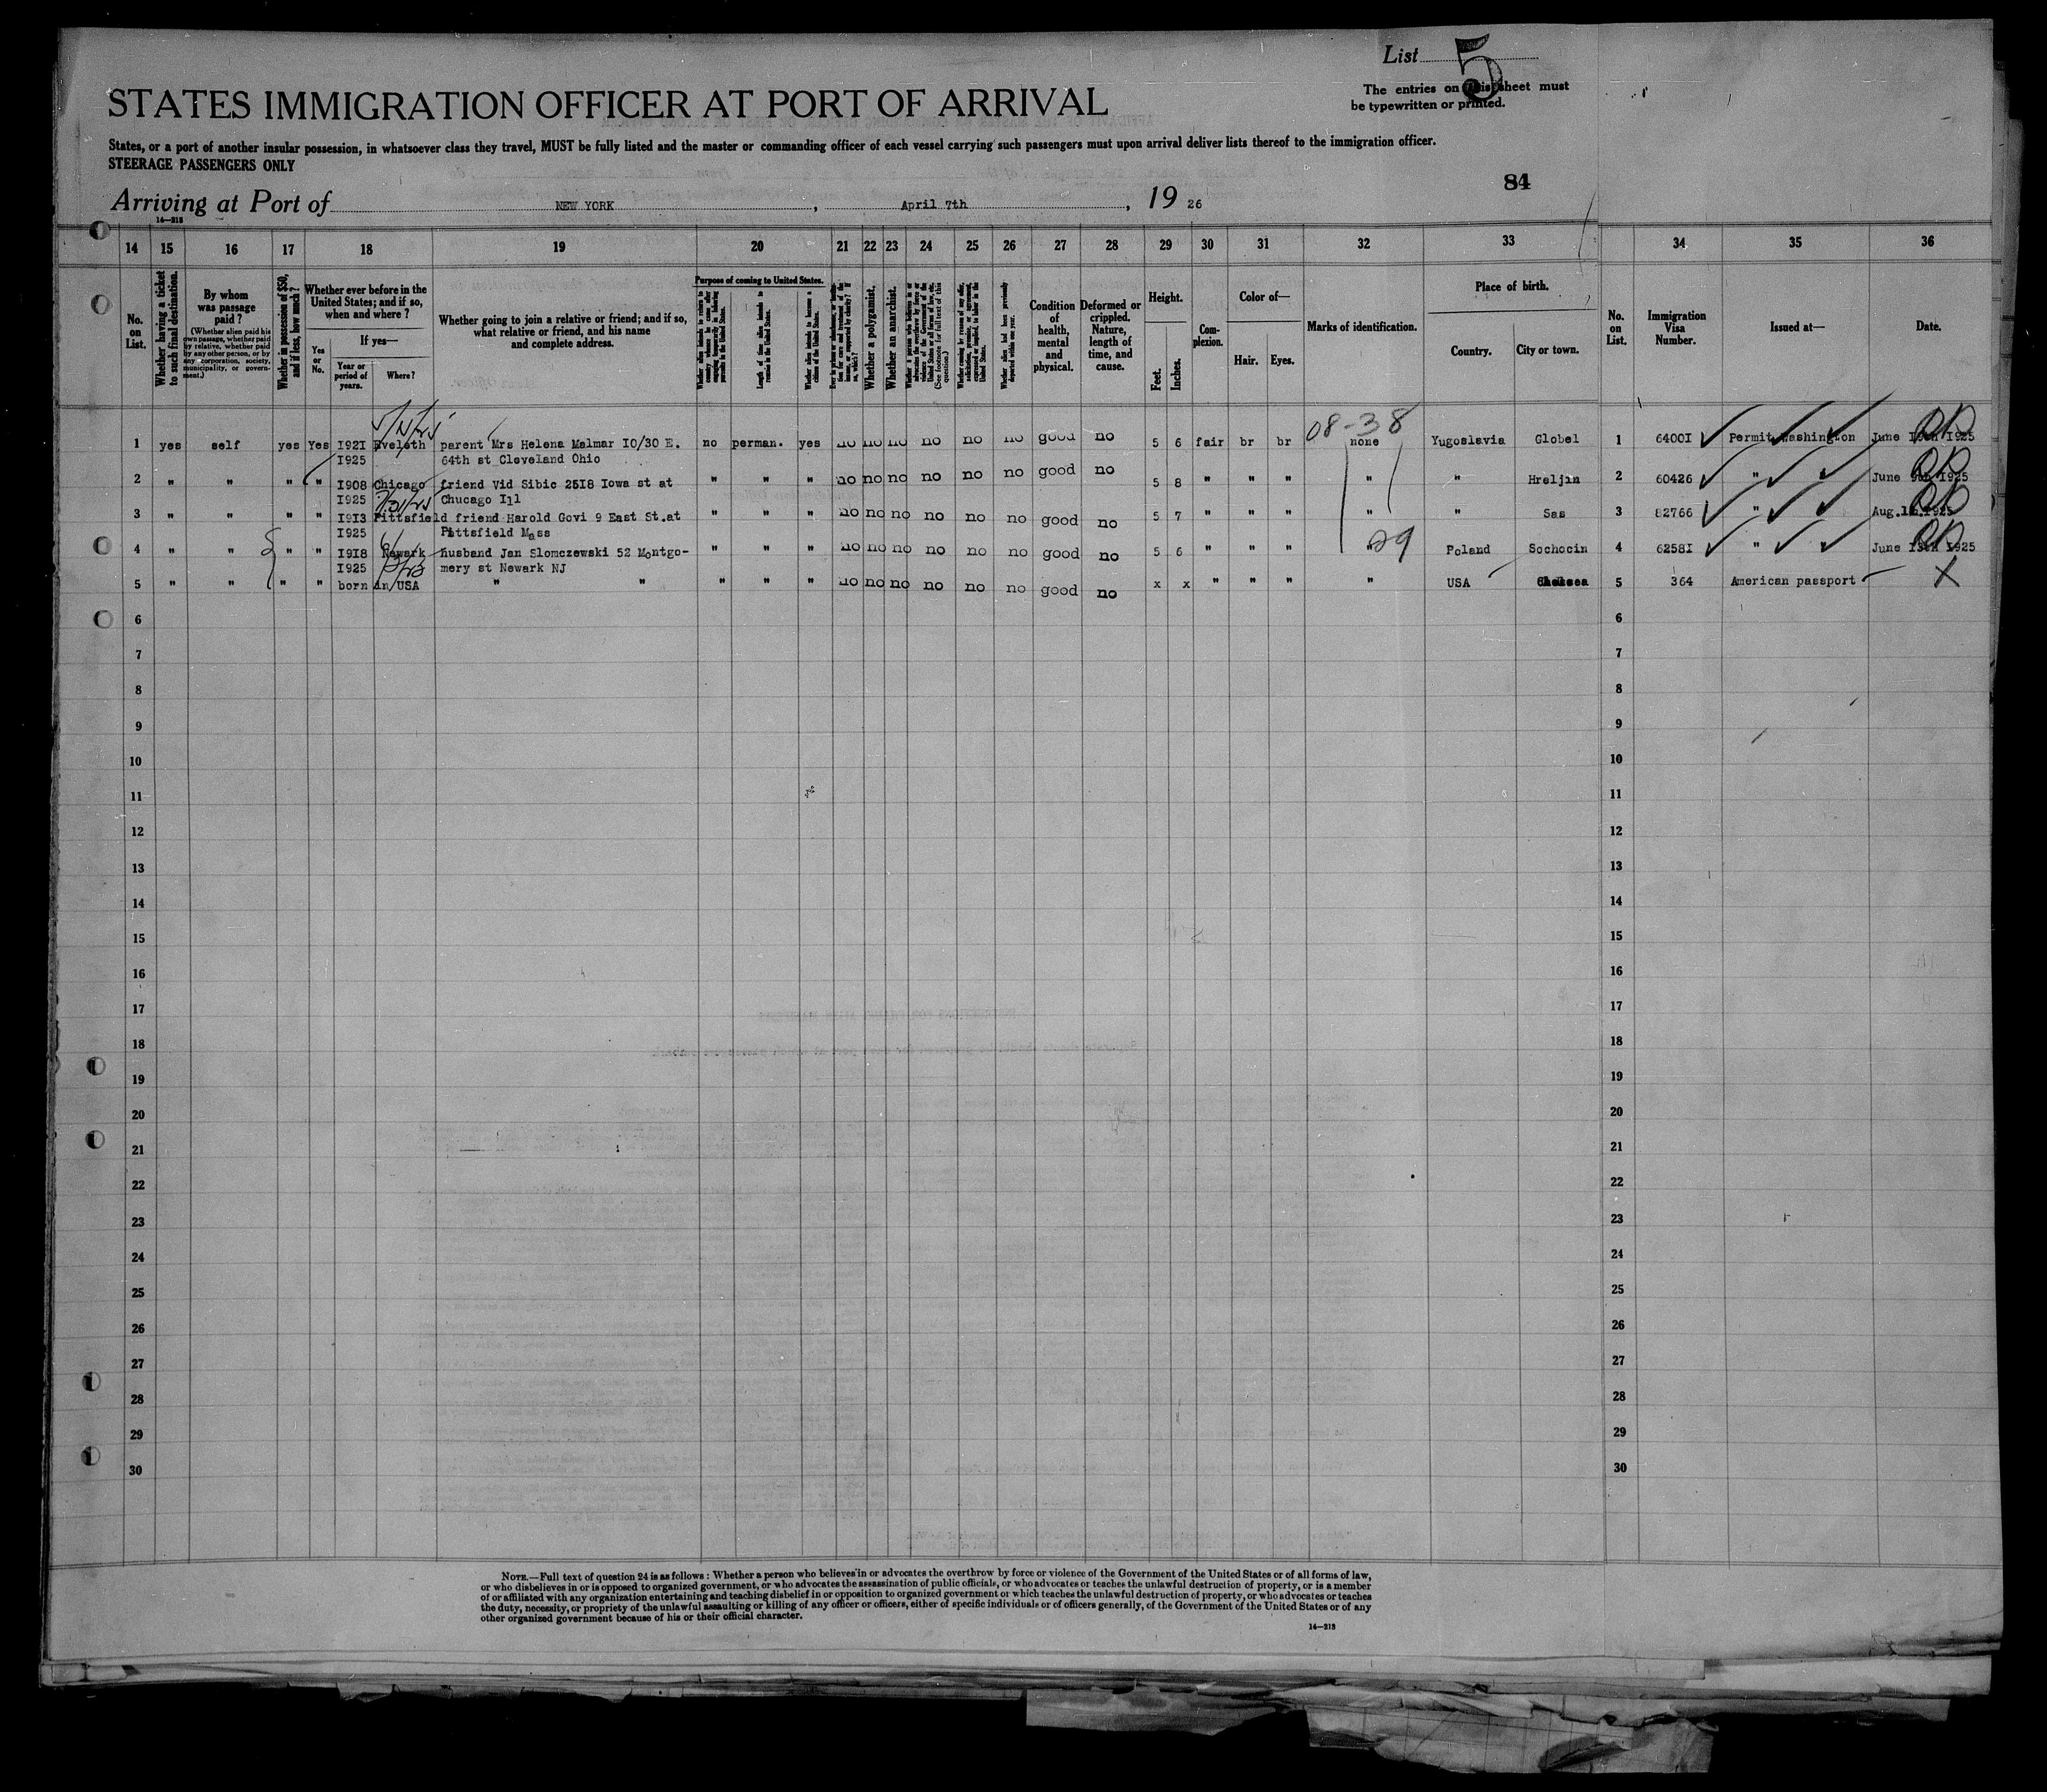 List 5
The entries on this sheet must
be typewritten or printed.
STATES IMMIGRATION OFFICER AT PORT OF ARRIVAL
States, or a port of another insular possession, in whatsoever class they travel, MUST be fully listed and the master or commanding officer of each vessel carrying such passengers must upon arrival deliver lists thereof to the immigration officer.
STEERAGE PASSENGERS ONLY
84
Arriving at Port of NEW YORK, April 7th, 19 26
14—213
14 15 16 17 18 19 20 21 22 23 24 25 26 27 28 29 30 31 32 33 34 35 36
No. on List.
Whether having a ticket to such final destination.
By whom was passage paid?
(Whether alien paid his own passage, whether paid by relative, whether paid by any other person, or by any corporation, society, municipality, or government.)
Whether in possession of $50, and if less, how much?
Whether ever before in the United States; and if so, when and where?
Yes or No.
If yes—
Year or period of years.
Where?
Whether going to join a relative or friend; and if so, what relative or friend, and his name and complete address.
Purpose of coming to United States.
Length of time alien intends to remain in the United States.
Whether alien intends to become a citizen of the United States.
Whether a polygamist.
Whether an anarchist.
(See footnote for full text of this question.)
Whether alien had been previously deported within one year.
Condition of health, mental and physical.
Deformed or crippled. Nature, length of time, and cause.
Height.
Feet.
Inches.
Complexion.
Color of—
Hair.
Eyes.
Marks of identification.
Place of birth.
Country.
City or town.
No. on List.
Immigration Visa Number.
Issued at—
Date.
08-38
1 yes self yes Yes 1921 Eveleth parent Mrs Helena Malmar 10/30 E. no perman. yes no no no no no no good no 5 6 fair br br none Yugoslavia Globel 1 64001 Permit Washington June 19th 1925
1925 64th st Cleveland Ohio
2 " " " " 1908 Chicago friend Vid Sibic 2518 Iowa st at " " " no no no no no no good no 5 8 " " " " " Hreljin 2 60426 " " June 9th 1925
1925 Chucago Ill
3 " " " " 1913 Pittsfield friend Harold Govi 9 East St.at " " " no no no no no no good no 5 7 " " " " " Sas 3 82766 " " Aug. 1925
1925 Pittsfield Mass
4 " " " " 1918 Newark husband Jan Slomczewski 52 Montgo- " " " no no no no no no good no 5 6 " " " " 29 Poland Sochocin 4 62581 " " June 13th 1925
1925 mery st Newark NJ
5 " " " " born in USA " " " " " no no no no no no good no x x " " " " USA Chelsea 5 364 American passport X
6 6
7 7
8 8
9 9
10 10
11 11
12 12
13 13
14 14
15 15
16 16
17 17
18 18
19 19
20 20
21 21
22 22
23 23
24 24
25 25
26 26
27 27
28 28
29 29
30 30
NOTE.—Full text of question 24 is as follows: Whether a person who believes in or advocates the overthrow by force or violence of the Government of the United States or of all forms of law,
or who disbelieves in or is opposed to organized government, or who advocates the assassination of public officials, or who advocates or teaches the unlawful destruction of property, or is a member
of or affiliated with any organization entertaining and teaching disbelief in or opposition to organized government or which teaches the unlawful destruction of property, or who advocates or teaches
the duty, necessity, or propriety of the unlawful assaulting or killing of any officer or officers, either of specific individuals or of officers generally, of the Government of the United States or of any
other organized government because of his or their official character.
14—213